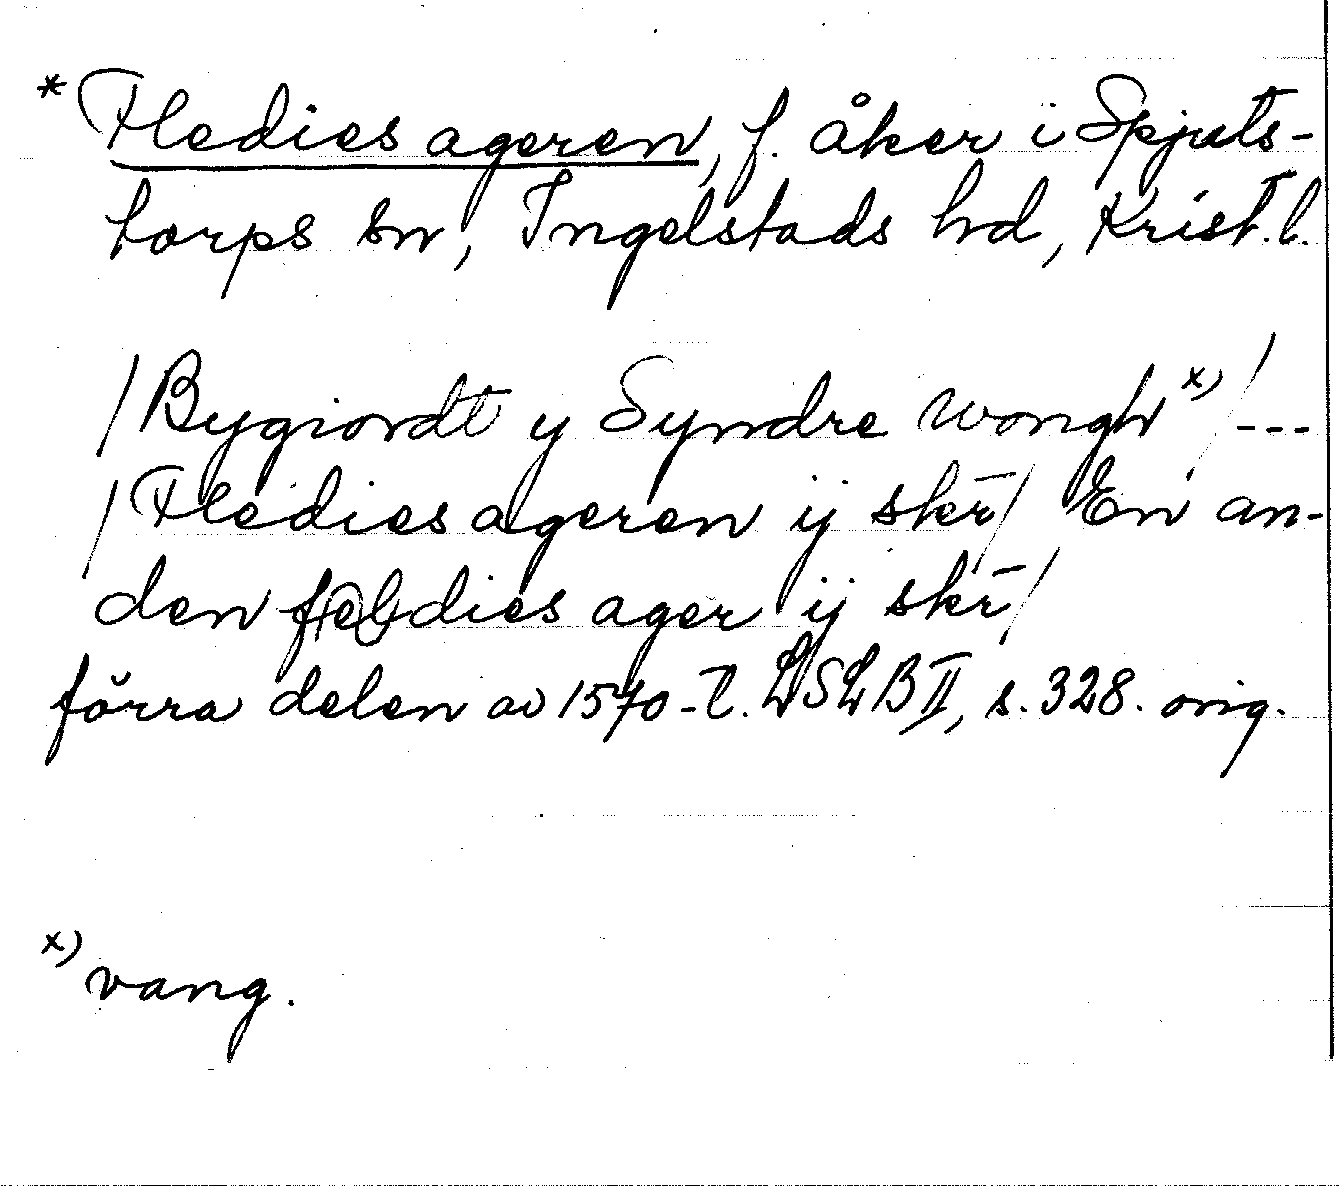 * Fledies ageren, f. åker i Spjuts-
torps sn, Ingelstads hd, Krist. l.
/Bygiordt y Syndre wongh x)/ ---
/Fledies ageren ij skr̄/ En an-
den fledies ager ij skr̄/
förra delen av 1570-t. LSLB II, s. 328. orig.
x) vang.